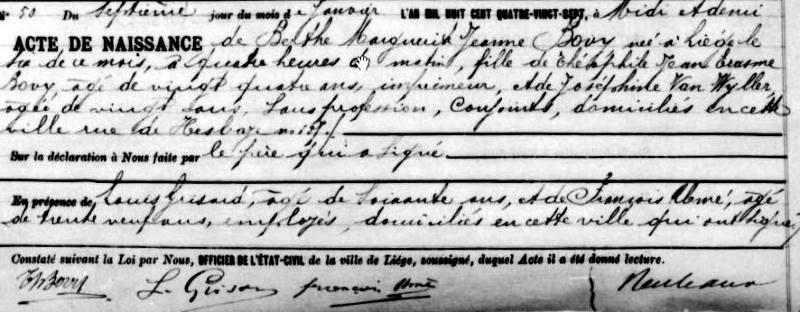 N° 50 Du Septième jour du mois de Janvier L'AN MIL HUIT CENT QUATRE-VINGT-SEPT, à Midi et demi
ACTE DE NAISSANCE de Berthe Marguerite Jeanne Bovy née à Liége le
six de ce mois, à quatre heures du matin, fille de Théophile Jean Erasme
Bovy, âgé de vingt quatre ans, imprimeur, et de Joséphine Van Wyller,
âgée de vingt ans, sans profession, conjoints, domiciliés en cette
ville rue de Hesbaye n°
Sur la déclaration à Nous faite par le père qui a signé
En présence de Louis Grisard, âgé de soixante ans, et de François Aimé, âgé
de trente neuf ans, employés, domiciliés en cette ville qui ont signé
Constaté suivant la Loi par Nous, OFFICIER DE L'ÉTAT-CIVIL de la ville de Liége, soussigné, duquel Acte il a été donné lecture.
Th Bovy L. Grisard françois Aimé